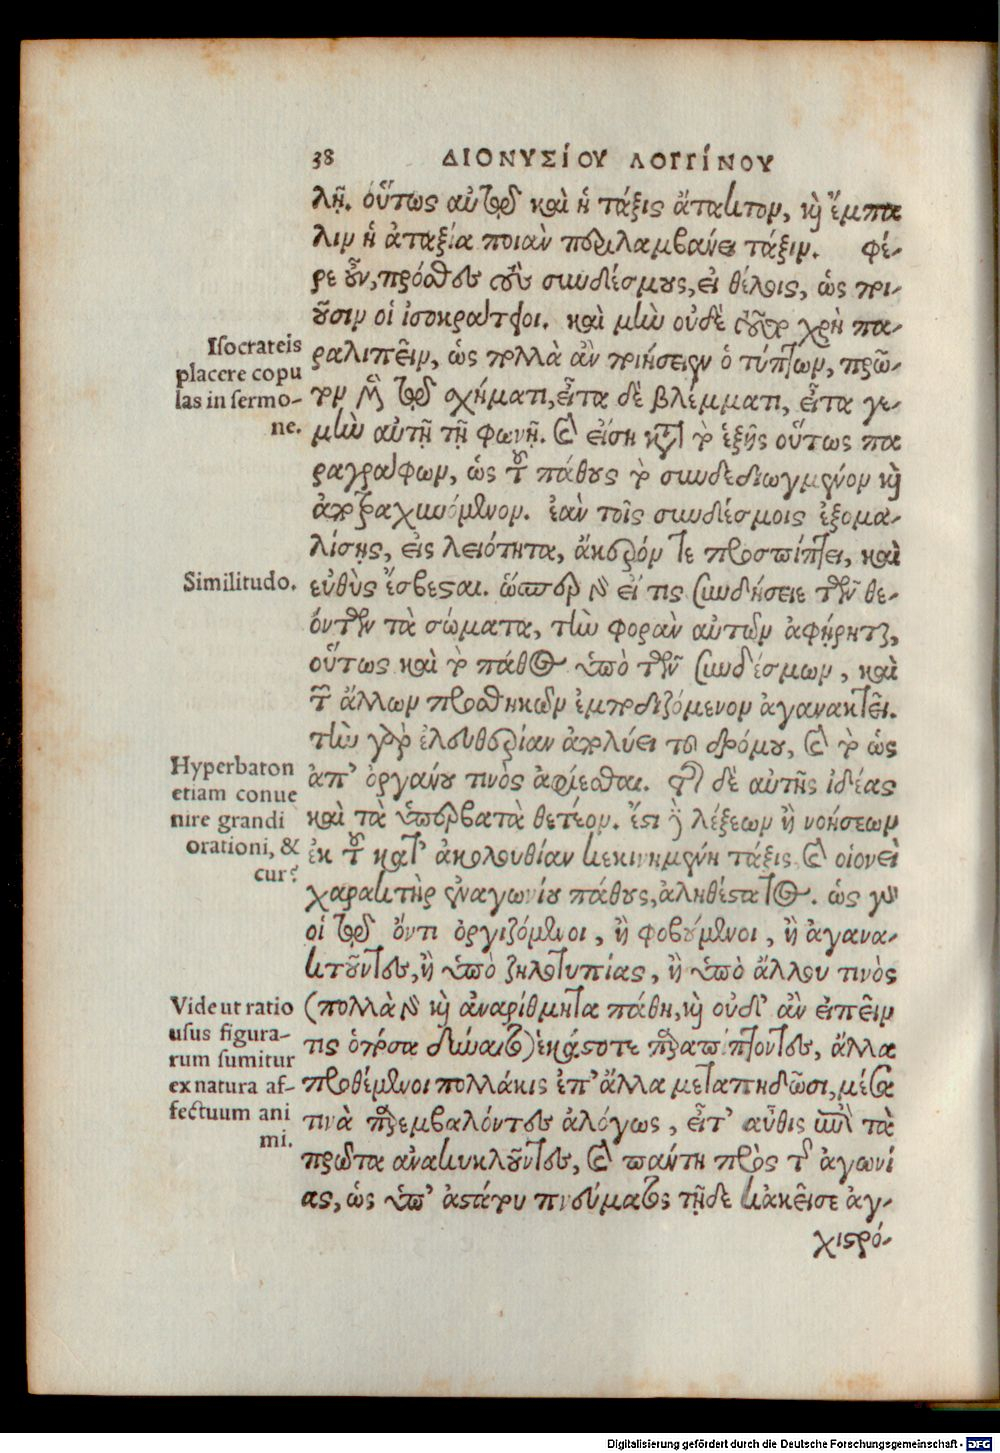 38 ΔΙΟΝΥΣίΟΥ ΛΟΓΓίΝΟΥ
λῇ. οὕτως αὐτῷ καὶ ἡ τάξις ἄτακτον, καὶ ἔμπα
λιν ἡ ἀταξία ποιὰν περιλαμβάνει τάξιν. φέ-
ρε οὖν, πρόσθες τοὺς συνδέσμους, εἰ θέλοις, ὡς ποι-
οῦσιν οἱ ἰσοκράτειοι. καὶ μὴν οὐδὲ τοῦτο χρὴ πα-
ραλιπεῖν, ὡς πολλὰ ἂν ποιήσειεν ὁ τύπτων, πρῶ-
τον μὲν τῷ σχήματι, εἶτα δὲ βλέμματι, εἶτα γε-
μὴν αὐτῇ τῇ φωνῇ. καὶ εἴσῃ κατὰ τὸ ἑξῆς οὕτως πα
ραγράφων, ὡς τοῦ πάθους τὸ συνδεδιωγμένον καὶ
ἀποτραχυνόμενον. ἐὰν τοῖς συνδέσμοις ἐξομα-
λίσῃς, εἰς λειότητα, ἄκεντρόν τε προσπίπτει, καὶ
εὐθὺς ἔσβεσται. ὥσπερ γὰρ εἴ τις συνδήσειε τῶν θε-
όντων τὰ σώματα, τὴν φορὰν αὐτῶν ἀφῄρηται,
οὕτως καὶ τὸ πάθος ὑπὸ τῶν συνδέσμων, καὶ
τῶν ἄλλων προσθηκῶν ἐμποδιζόμενον ἀγανακτεῖ.
τὴν γὰρ ἐλευθερίαν ἀπολύει τοῦ δρόμου, καὶ τὸ ὡς
ἀπ' ὀργάνου τινὸς ἀφίεσθαι. τῆς δὲ αὐτῆς ἰδέας
καὶ τὰ ὑπερβατὰ θετέον. ἔστι δὲ λέξεων ἢ νοήσεων
ἐκ τοῦ κατ' ἀκολουθίαν κεκινημένη τάξις καὶ οἱονεὶ
χαρακτὴρ ἐναγωνίου πάθους, ἀληθέστατος. ὡς γὰρ
οἱ τῷ ὄντι ὀργιζόμενοι, ἢ φοβούμενοι, ἢ ἀγανα-
κτοῦντες, ἢ ὑπὸ ζηλοτυπίας, ἢ ὑπὸ ἄλλου τινὸς
(πολλὰ γὰρ καὶ ἀναρίθμητα πάθη, καὶ οὐδ' ἂν εἰπεῖν
τις ὁπόσα δύναιτο) ἑκάστοτε παραπίπτοντες, ἄλλα
προθέμενοι πολλάκις ἐπ' ἄλλα μεταπηδῶσι, μέσα
τινὰ παρεμβαλόντες ἀλόγως, εἶτ' αὖθις ἐπὶ τὰ
πρῶτα ἀνακυκλοῦντες, καὶ πάντη πρὸς τῆς ἀγωνί
ας, ὡς ὑπ' ἀστάτου πνεύματος τῇδε κἀκεῖσε ἀγ-
χιστρό-
Isocrateis
placere copu
las in sermo-
ne.
Similitudo.
Hyperbaton
etiam conue
nire grandi
orationi, &
cur?
Vide ut ratio
usus figura-
rum sumitur
ex natura af-
fectuum ani
mi.
Digitalisierung gefördert durch die Deutsche Forschungsgemeinschaft - DFG